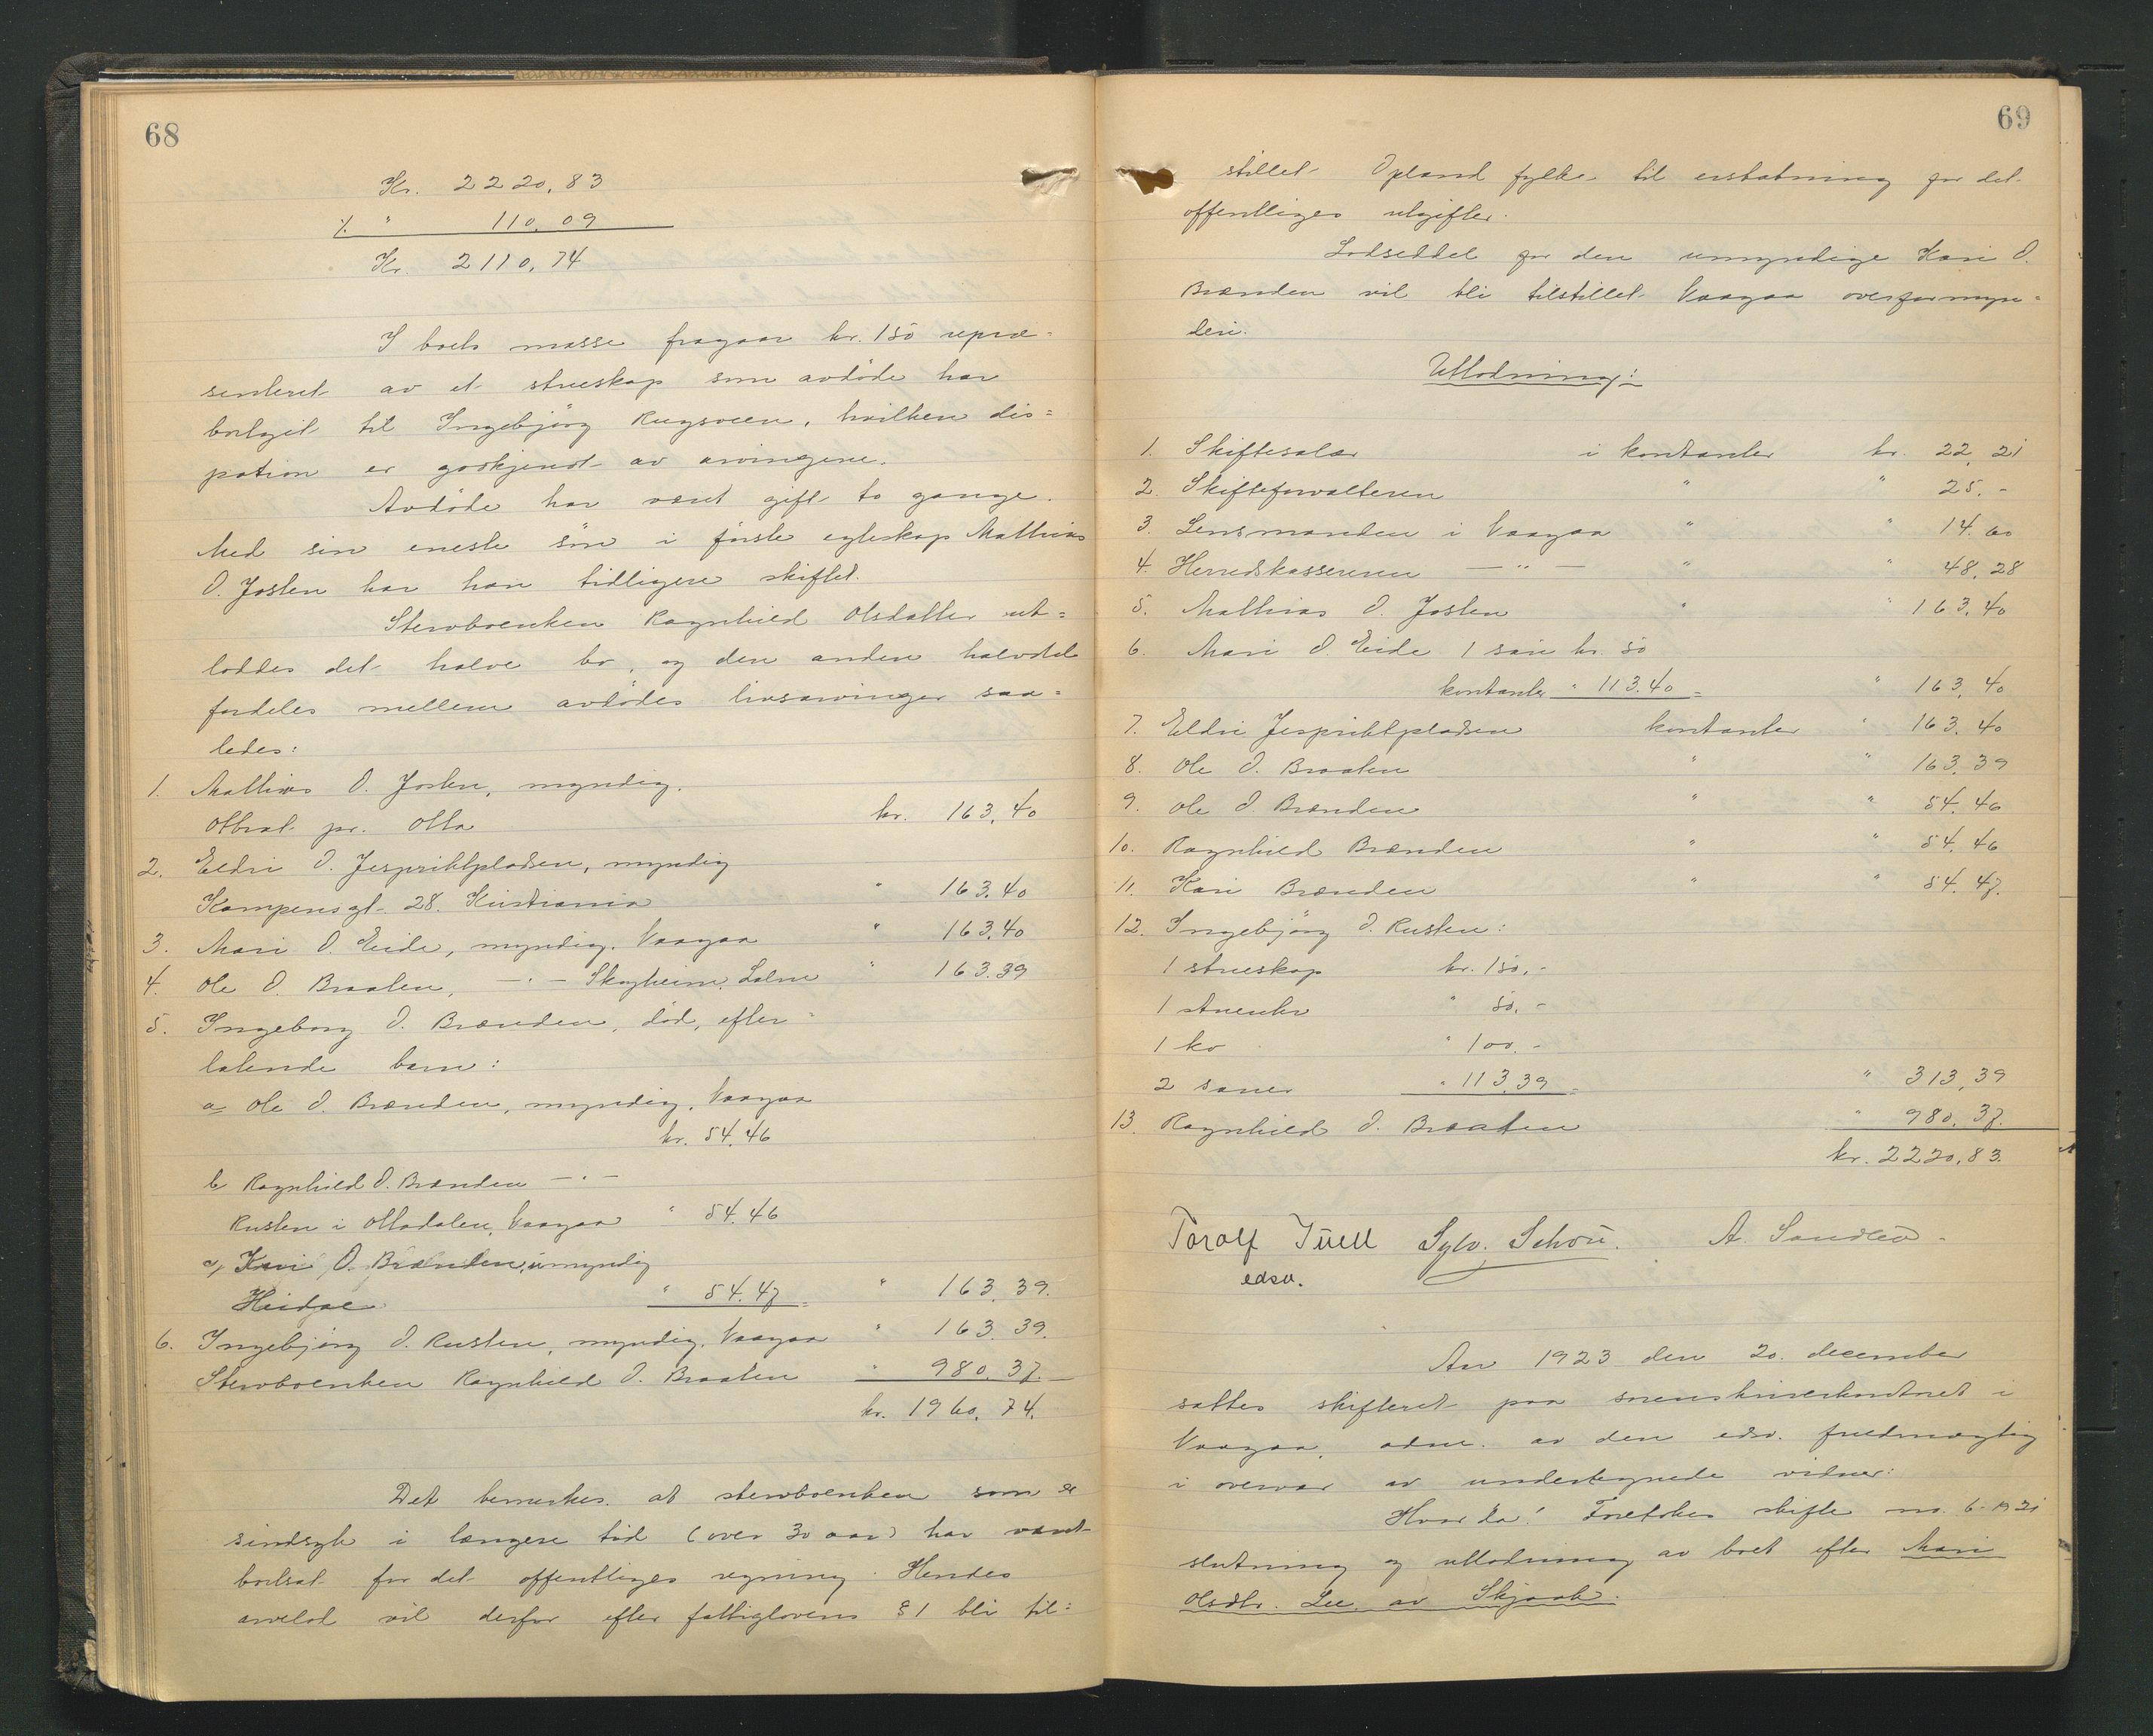 68
Kr. 2220,83
÷ " 110,09
Kr. 2110,74
I boets masse fragaar kr. 150 repræ=
senteret av et strueskap som avdöde har
bortgit til Ingebjörg Rugsveen, hvilken dis=
position er godkjendt av arvingene.
Avdöde har vænt gift to gange.
Med sin eneste sön i förste egteskap Mathias
O. Josten har han tidligere skiftet.
Stervboenken Ragnhild Olsdatter ut=
loddes det halve bo, og den anden halvdel
fordeles mellem avdödes livsarvinger saa=
ledes:
1. Mathias O. Josten, myndig.
Ottral pr. Otta kr. 163,40
2. Eldri O. Jesprihtpladsen, myndig
Kampensgt. 28. Kristiania " 163.40
3. Mari O. Eide, myndig. Vaagaa " 163.40
4. Ole O. Braaten, — " — Skogheim, Lalm " 163.39
5. Ingeborg O. Brænden, död, efter=
latende barn:
a/ Ole O. Brænden, myndig, Vaagaa
kr. 54.46
b Ragnhild O. Brænden — " —
Rusten i Ottadalen, Vaagaa " 54.46
c/ Kari O. Brænden, umyndig
Heidal " 54.47 = " 163.39.
6. Ingebjörg O. Rusten, myndig. Vaagaa " 163.39.
Stervboenken Ragnhild O. Braaten " 980.37.
kr. 1960,74.
Det bemerkes at stervboenken som er
sindsyk i længere tid (over 30 aar) har vænt
bortsat for det offentliges regning. Hendes
arvelod vil derfor efter fattiglovens § 1 bli til=
69
stillet Opland fylke til erstatning for det
offentliges utgifter.
Lodseddel for den umyndige Kari O.
Brænden vil bli tilstillet Vaagaa overformyn=
deri.
Utlodning:
1. Skiftesalær i kontanter kr. 22,21
2. Skifteforvalteren " " 25.-
3. Lensmanden i Vaagaa " " 14.60
4. Herredskassereren — " — " " 48,28
5. Mathias O. Josten " " 163.40
6. Mari O. Eide 1 sau kr. 50
kontanter " 113.40 = " 163,40
7. Eldri Jesprihtpladsen kontanter " 163.40
8. Ole O. Braaten " " 163.39
9. Ole O. Brænden " " 54.46
10. Ragnhild Brænden " " 54.46
11. Kari Brænden " " 54.47.
12. Ingebjörg O. Rusten:
1 strueskap kr. 150.-
1 stueuhr " 50.-
1 ko " 100.-
2 sauer " 113.39 = " 313,39
13. Ragnhild O. Braaten " 980.37.
kr. 2220,83.
Toralf Juell Sylv. Schou. A. Sandlien
edsv.
Aar 1923 den 20. december
sattes skifteret paa sorenskriverkontoret i
Vaagaa, adm. av den edsv. fuldmægtig
i overvær av undertegnede vidner:
Hvorda! Foretokes skifte no. 6-1921
slutning og utlodning av boet efter Mari
Olsdtr. Lee av Skjaak.